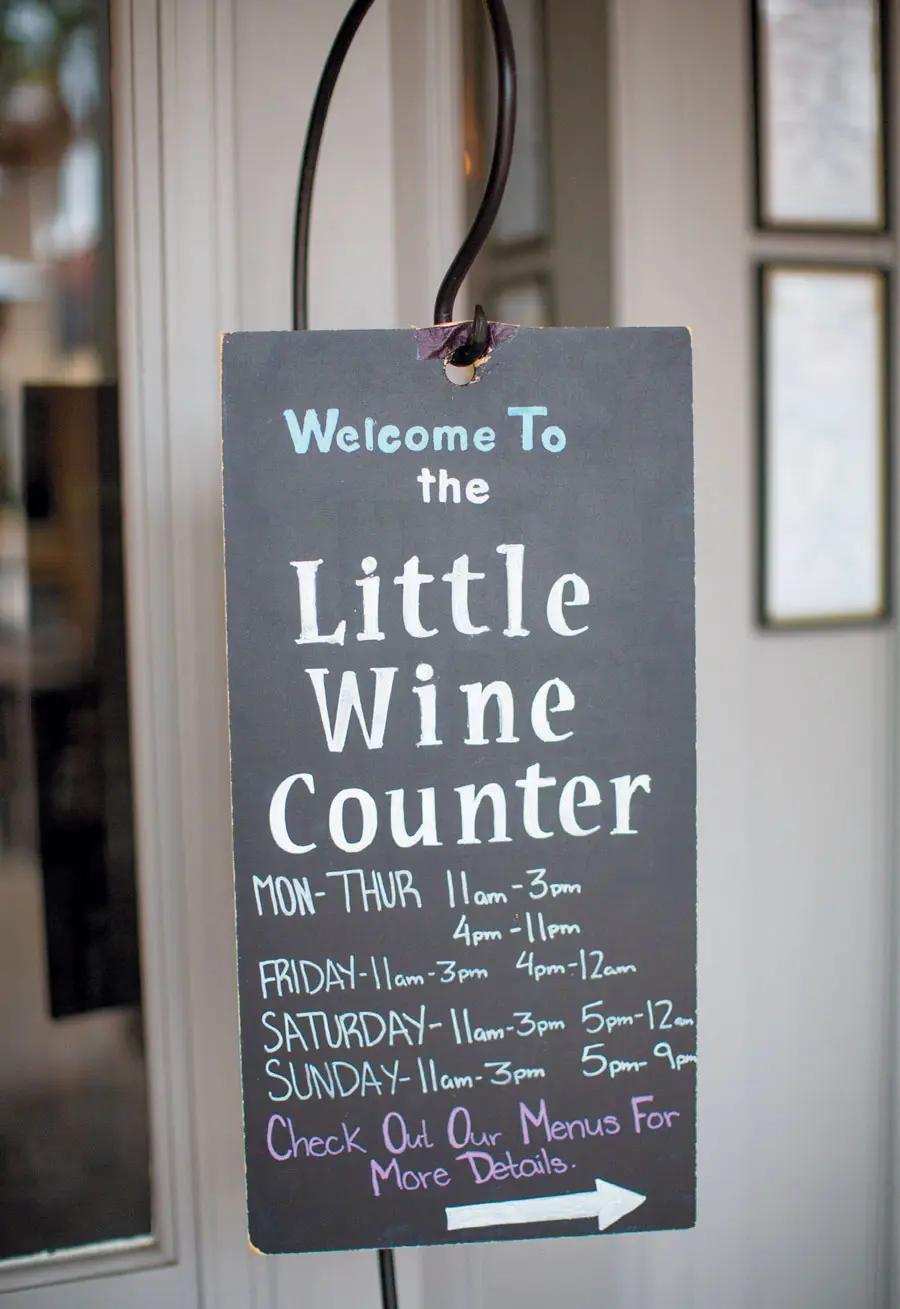 Welcome To
the
Little
Wine
Counter
MON-THUR 11am-3pm
4pm-11pm
FRIDAY-11am-3pm 4pm-12am
SATURDAY-11am-3pm 5pm-12am
SUNDAY-11am-3pm 5pm-9pm
Check Out Our Menus For
More Details.